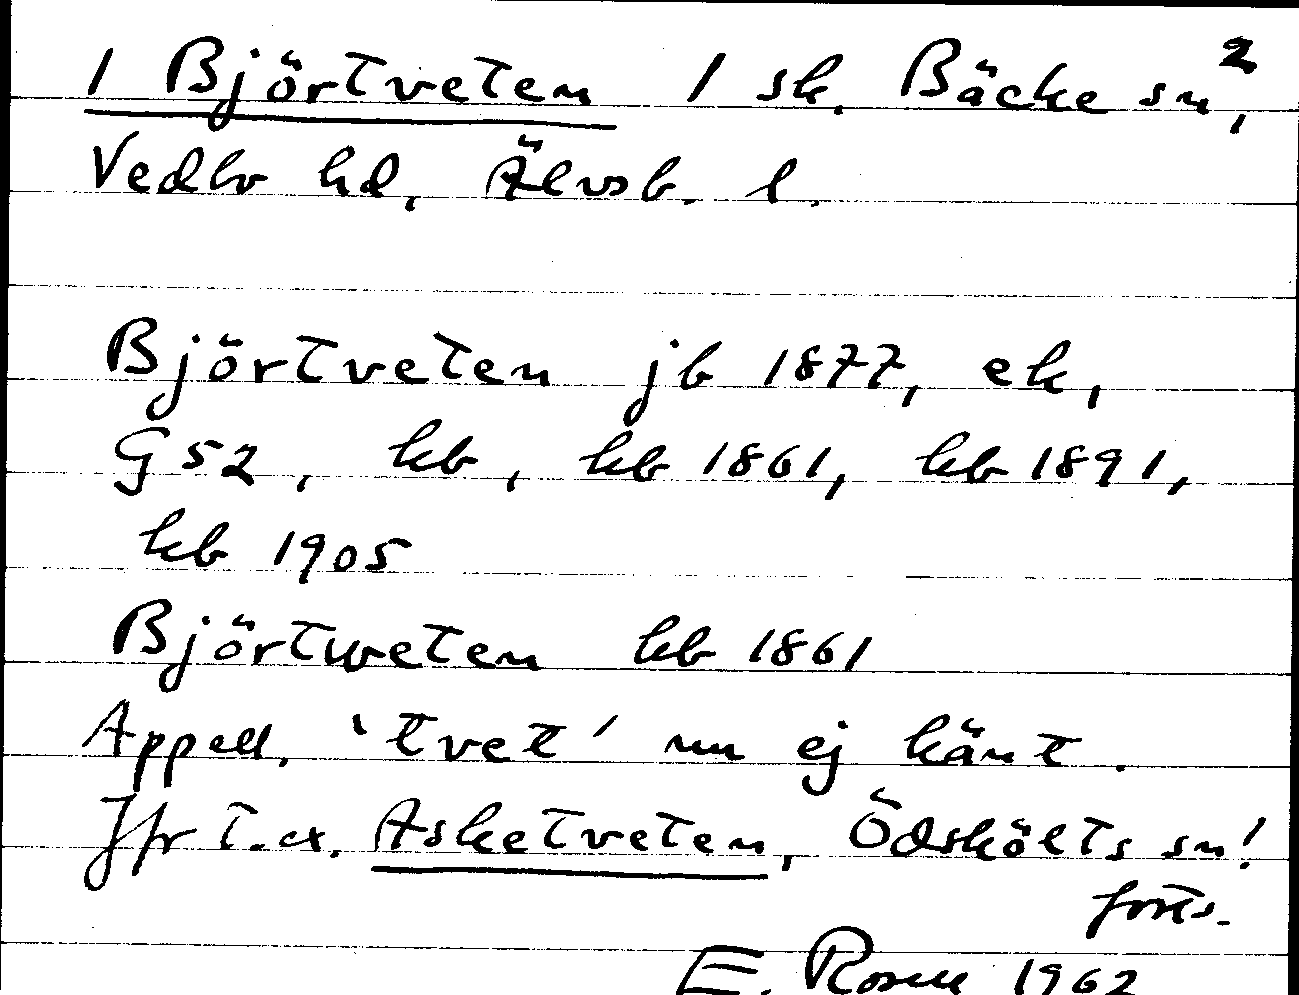 1 Björtveten 1 sk. Bäcke sn, 2
Vedbo hd, Älvsb. l.
Björtveten jb 1877, ek,
G52, kb, kb 1861, kb 1891,
kb 1905
Björtweten kb 1861
Appell. 'tvet' nu ej känt.
Jfr t.ex. Asketveten, Ödskölts sn!
forts.
E. Rosell 1962